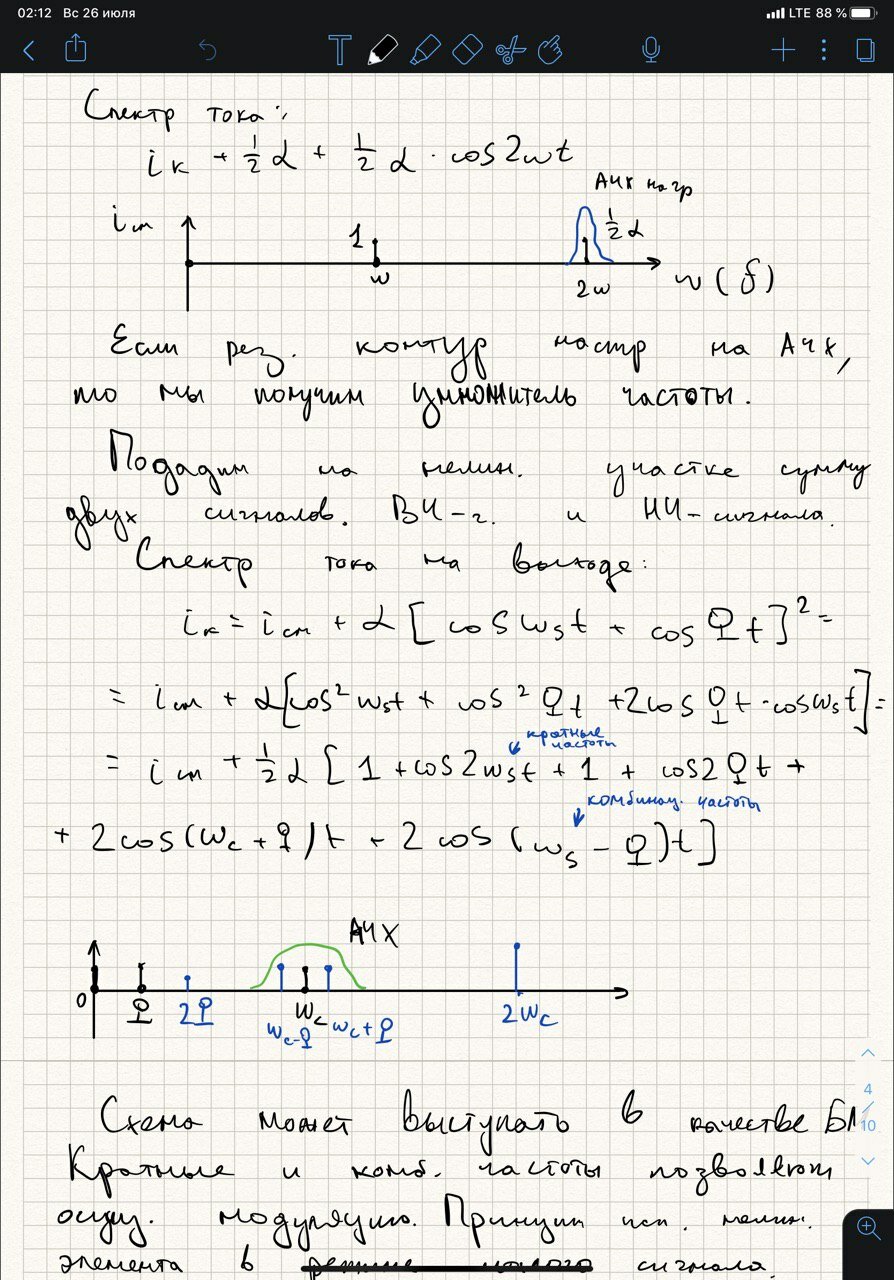 02:12 Вс 26 июля LTE 88 %
T
Спектр тока:
iк + 1/2 α + 1/2 α · cos2ωt
АЧХ нагр
iсм 1 1/2 α
ω 2ω ω (f)
Если рез. контур настр на АЧХ,
то мы получим умножитель частоты.
Подадим на нелин. участке сумму
двух сигналов. ВЧ-г. и НЧ-сигнала.
Спектр тока на выходе:
iк = iсм + α [cos ωst + cos Ωt]² =
= iсм + α[cos² ωst + cos² Ωt + 2cos Ωt · cosωst] =
кратные
частоты
= iсм + 1/2 α [1 + cos2ωst + 1 + cos2Ωt +
комбинац. частоты
+ 2cos(ωc + Ω)t + 2cos(ωs - Ω)t]
АЧХ
0 Ω 2Ω ωc 2ωc
ωc-Ω ωc+Ω
4
10
Схема может выступать в качестве БМ
Кратные и комб. частоты позволяют
осущ. модуляцию. Принцип исп. нелин.
элемента в сигнала.